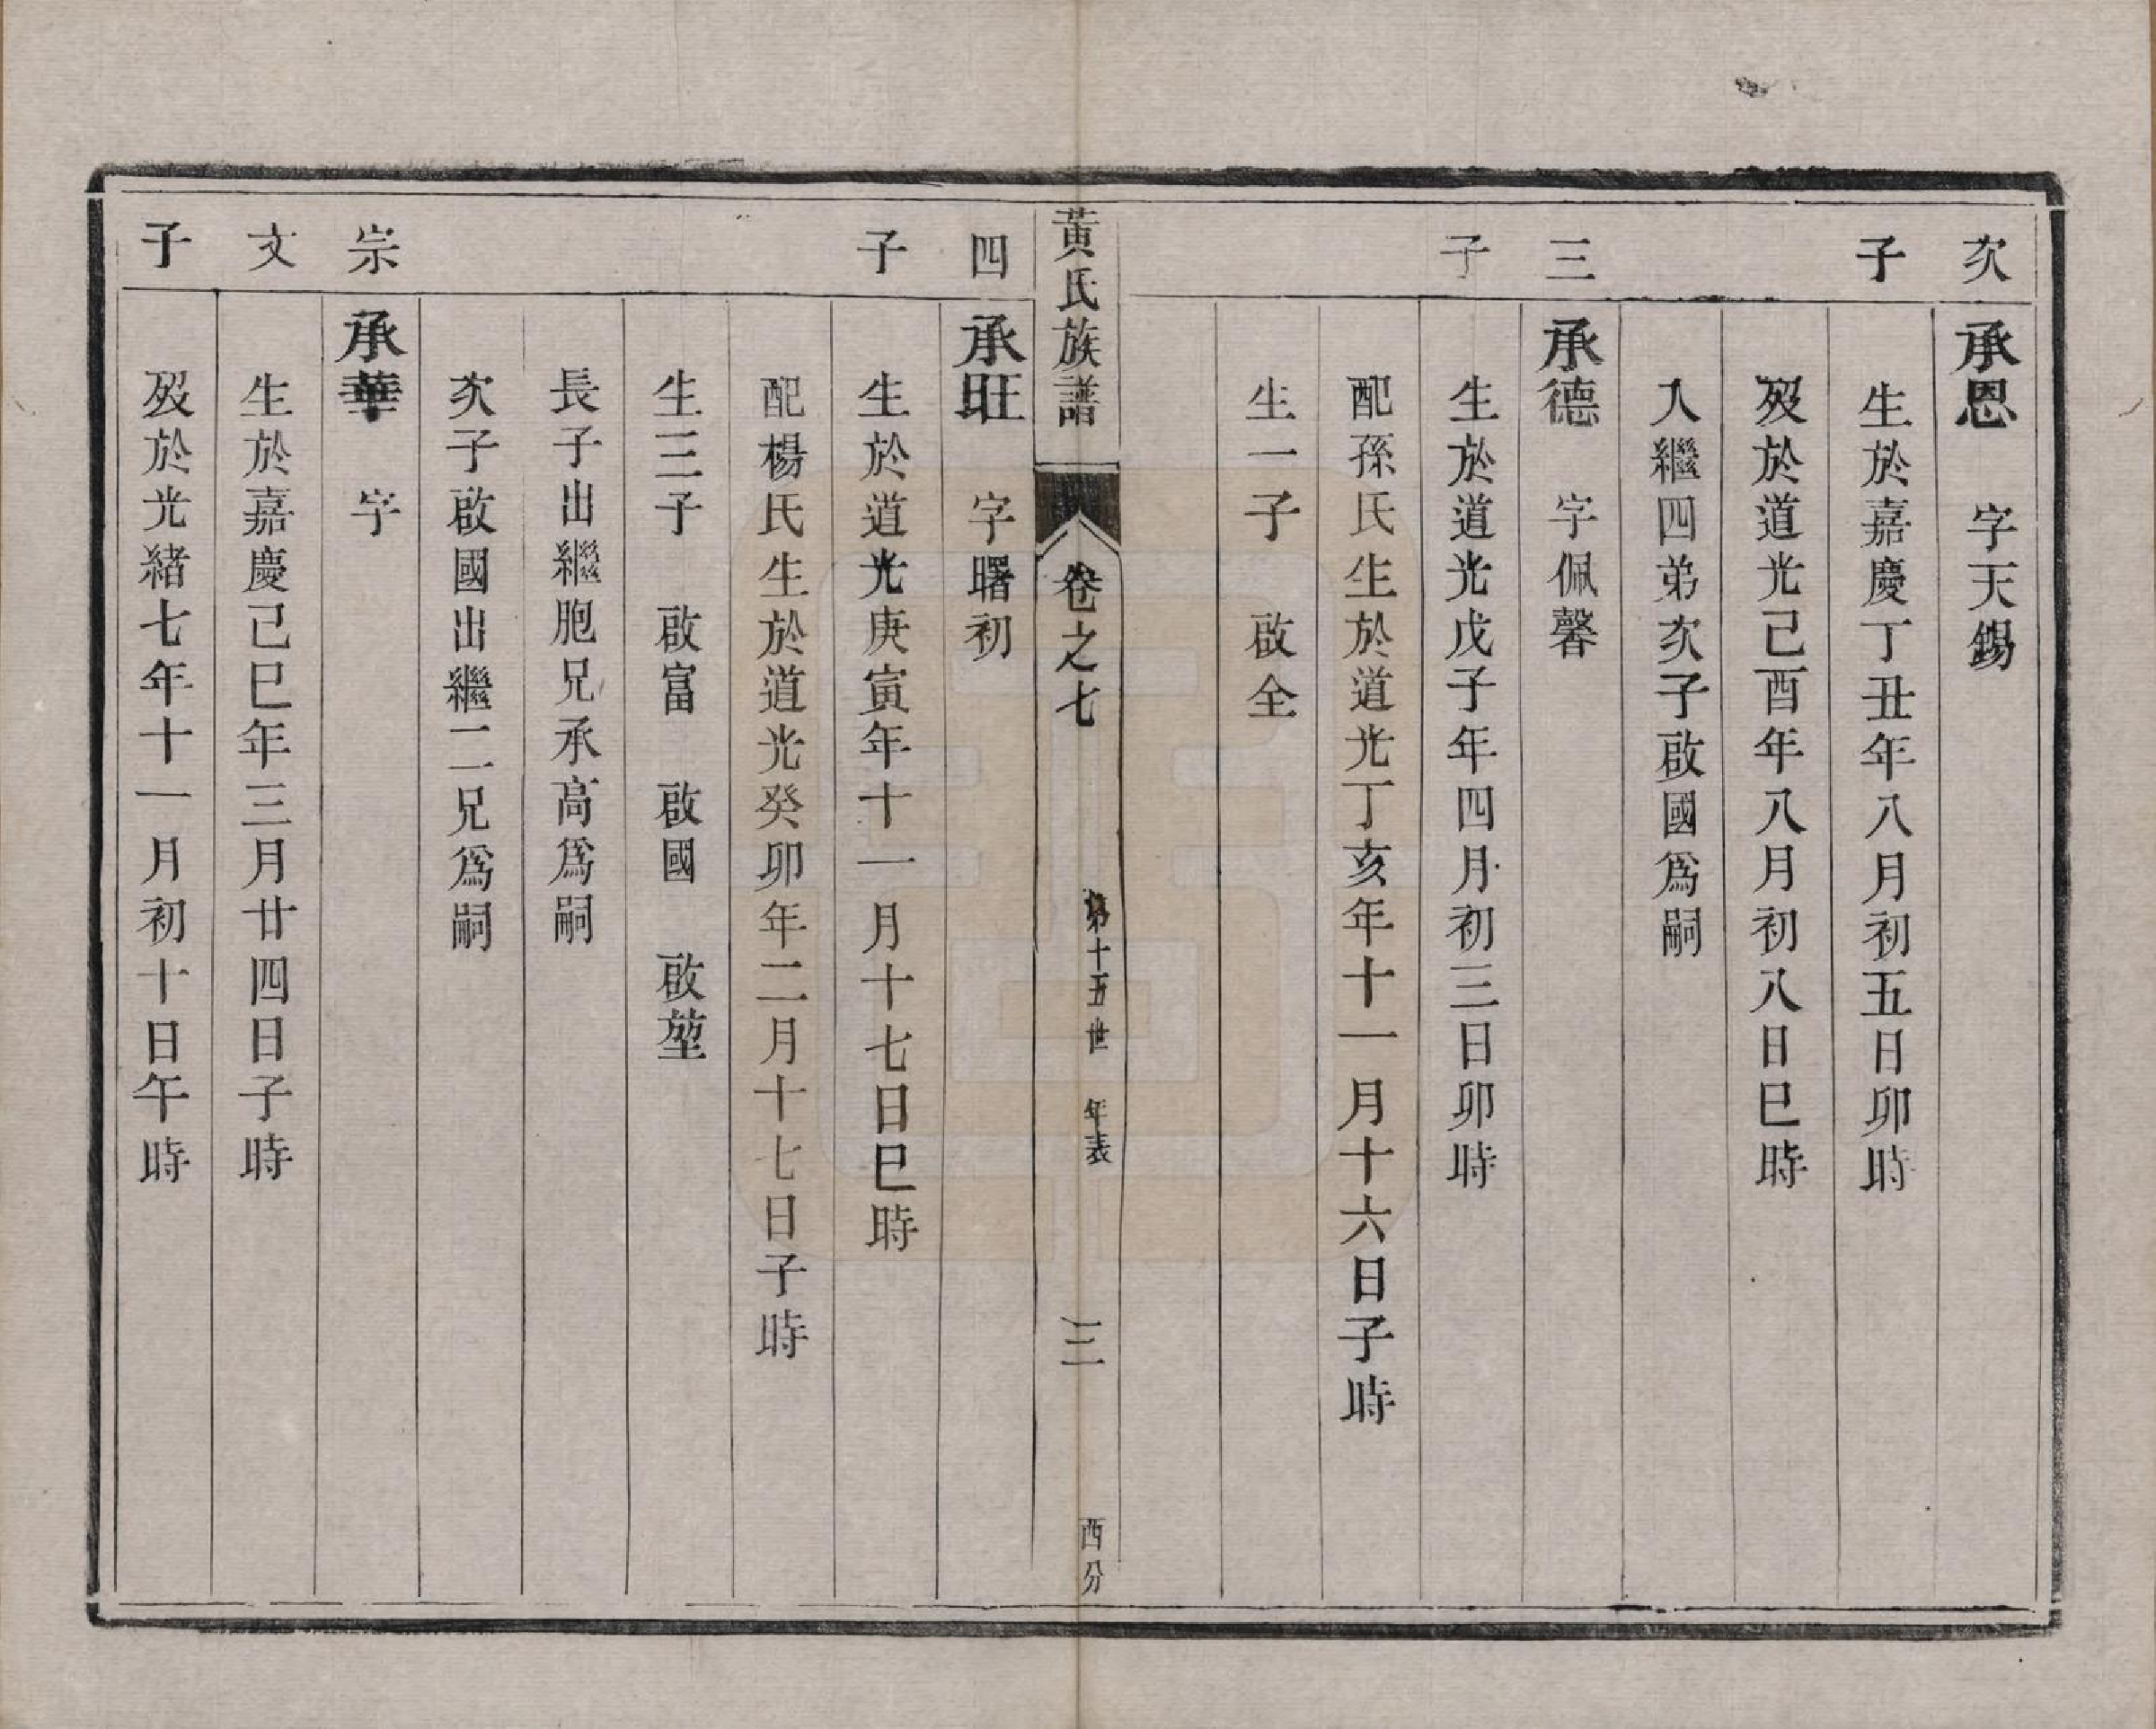 次子
承恩 字天錫
生於嘉慶丁丑年八月初五日卯時
歿於道光己酉年八月初八日巳時
入繼四弟次子啟國爲嗣
三子
承德 字佩馨
生於道光戊子年四月初三日卯時
配孫氏生於道光丁亥年十一月十六日子時
生一子 啟全
黃氏族譜 卷之七 第十五世 年表 三 西分
四子
承旺 字曙初
生於道光庚寅年十一月十七日巳時
配楊氏生於道光癸卯年二月十七日子時
生三子 啟富 啟國 啟堃
長子出繼胞兄承高爲嗣
次子啟國出繼二兄爲嗣
宗文子
承華 字
生於嘉慶己巳年三月廿四日子時
歿於光緒七年十一月初十日午時